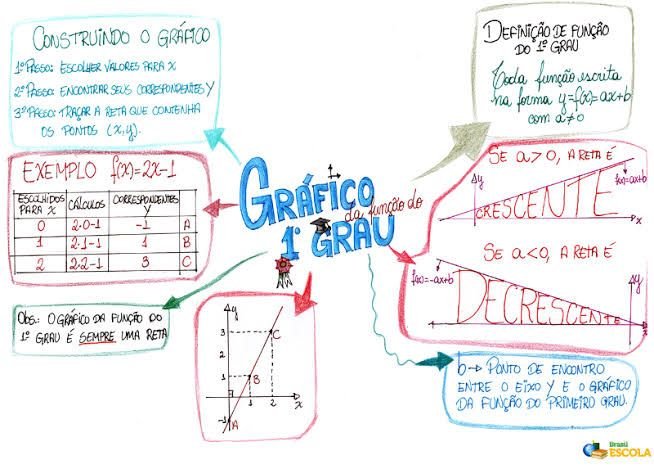 CONSTRUINDO O GRÁFICO
1º PASSO: ESCOLHER VALORES PARA x
2º PASSO: ENCONTRAR SEUS CORRESPONDENTES y
3º PASSO: TRAÇAR A RETA QUE CONTENHA
OS PONTOS (x,y).
DEFINIÇÃO DE FUNÇÃO
DO 1º GRAU
Toda função escrita
na forma y=f(x)=ax+b
com a≠0
EXEMPLO f(x)=2x-1
ESCOLHIDOS PARA x CÁLCULOS CORRESPONDENTES y
0 2·0-1 -1 A
1 2·1-1 1 B
2 2·2-1 3 C
GRÁFICO
da função do
1º GRAU
SE a>0, A RETA É
y
f(x)=ax+b
CRESCENTE
x
SE a<0, A RETA É
f(x)=-ax+b
y
DECRESCENTE
OBS.: O GRÁFICO DA FUNÇÃO DO
1º GRAU É SEMPRE UMA RETA
y
3
C
2
1
B
1 2 x
-1
A
b → PONTO DE ENCONTRO
ENTRE O EIXO Y E O GRÁFICO
DA FUNÇÃO DO PRIMEIRO GRAU.
Brasil
ESCOLA